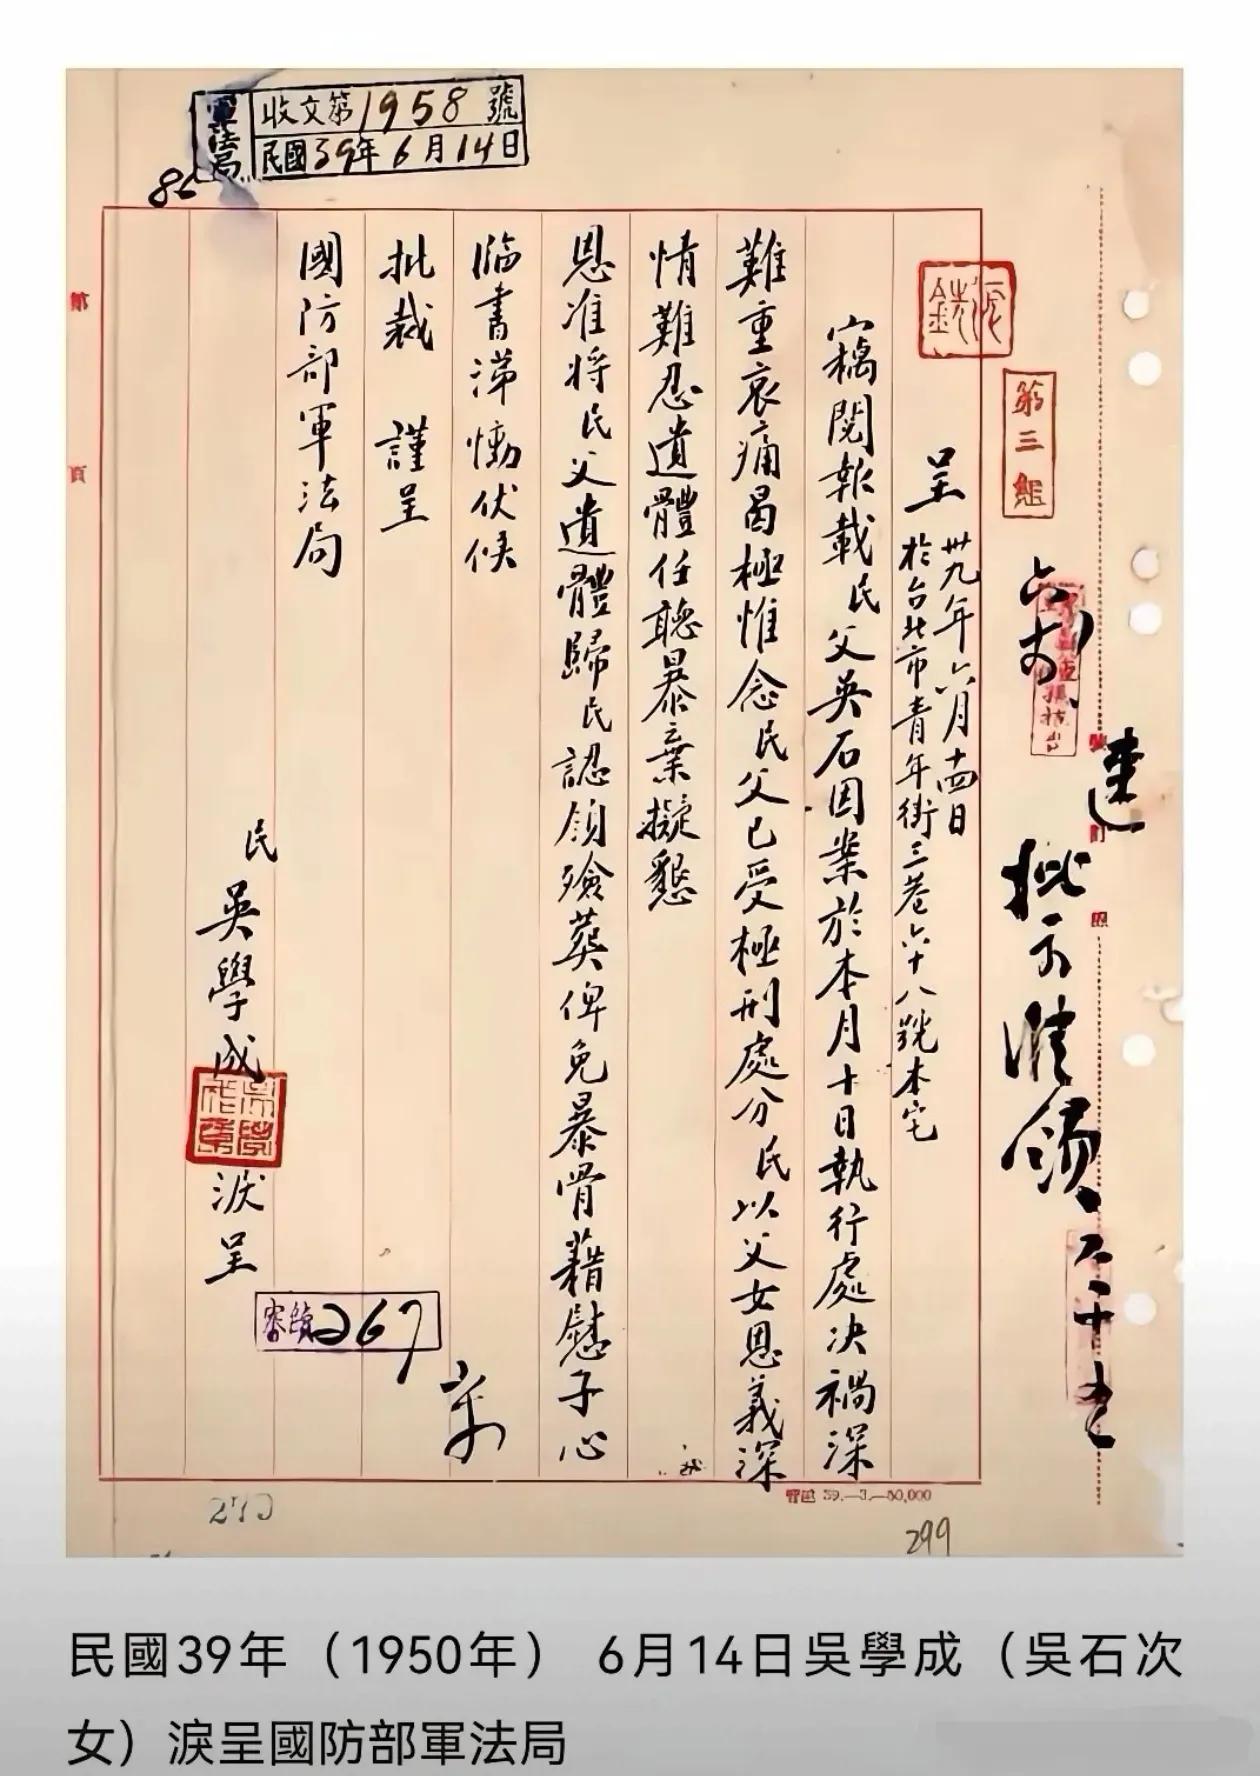 軍法局
收文第1958號
民國39年6月14日
第三組
呈 卅九年六月十四日
於台北市青年街三巷六十八號本宅
竊閱報載民父吳石因案於本月十日執行處决禍深
難重哀痛曷極惟念民父已受極刑處分民以父女恩義深
情難忍遺體任聽暴棄擬懇
恩准將民父遺體歸民認領殮葬俾免暴骨藉慰子心
臨書涕慟伏候
批裁 謹呈
國防部軍法局
民 吳學成 淚呈
批示准領
六 十五
267
第 頁
39.—3.—50,000
299
民國39年（1950年） 6月14日吳學成（吳石次
女）淚呈國防部軍法局